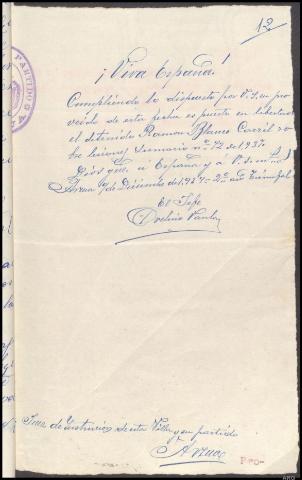 12
PARTIDO
¡Viva España!
Cumpliendo lo dispuesto por V.S. en pro
veido de esta fecha es puesto en libertad
el detenido Ramon Blanco Carril so
bre lesiones, sumario nº 72 de 1,937.
Dios gue. a España y a V.S. m. a.
Arzua 7 de Diciembre de 1,937 = 2º año Triunfal
El Jefe
Juez de Instruccion de esta Villa y su partido
Arzua